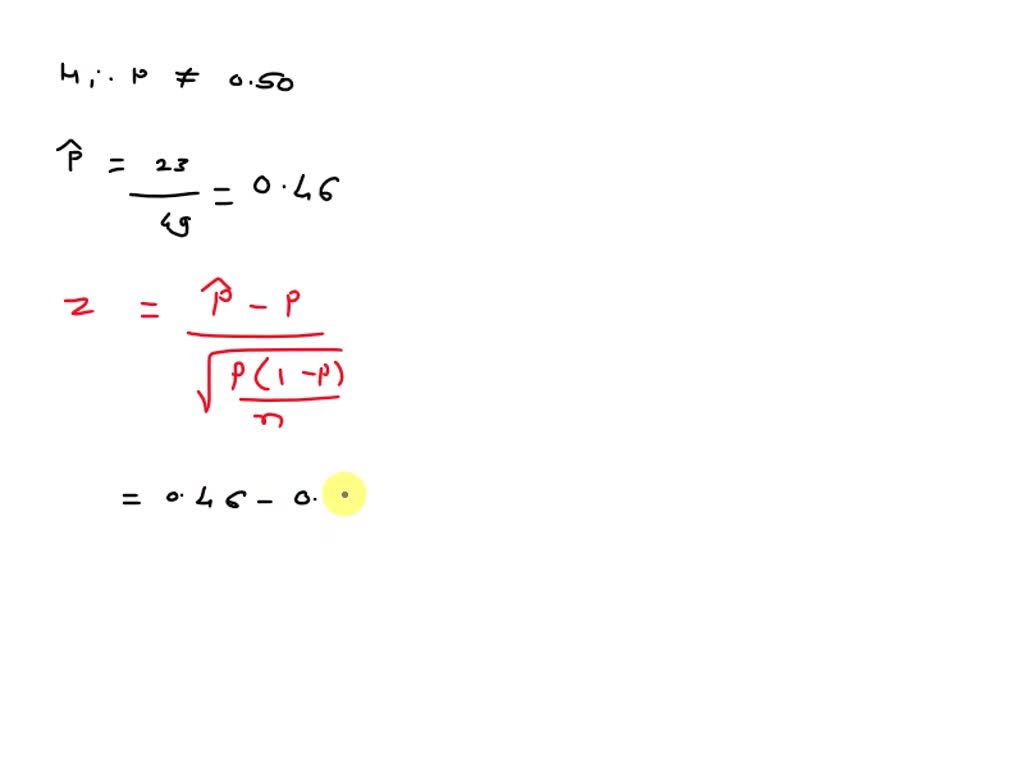 H₁: p ≠ 0.50
p̂ = 23/49 = 0.46
z = (p̂ - p) / √(p(1-p)/n)
= 0.46 - 0.